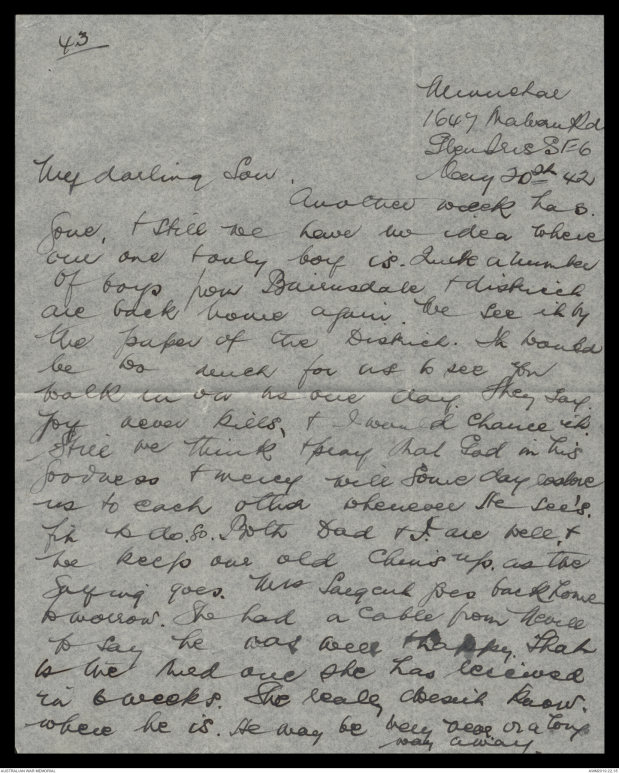 43
1647 Malvern Rd
Glen Iris SE6
May 20th 42
My darling Son.
Another week has
gone, & still we have no idea where
our one & only boy is. Quite a number
of boys from Bairnsdale & district
are back home again. We see it by
the paper of the District. It would
be too much for us to see you
walk in on us one day. They say
joy never kills, & I would chance it.
Still we think & pray that God in his
goodness & mercy will some day restore
us to each other whenever He see's.
fit to do. so. Both Dad & I. are well, &
we keep our old chins up. as the
saying goes. Mrs Sargent goes back home
tomorrow. She had a cable from Nevill
to say he was well & happy. That
is the third one she has received
in 6 weeks. She really doesn't know.
where he is. He may be very near or a long
way away.
AUSTRALIAN WAR MEMORIAL